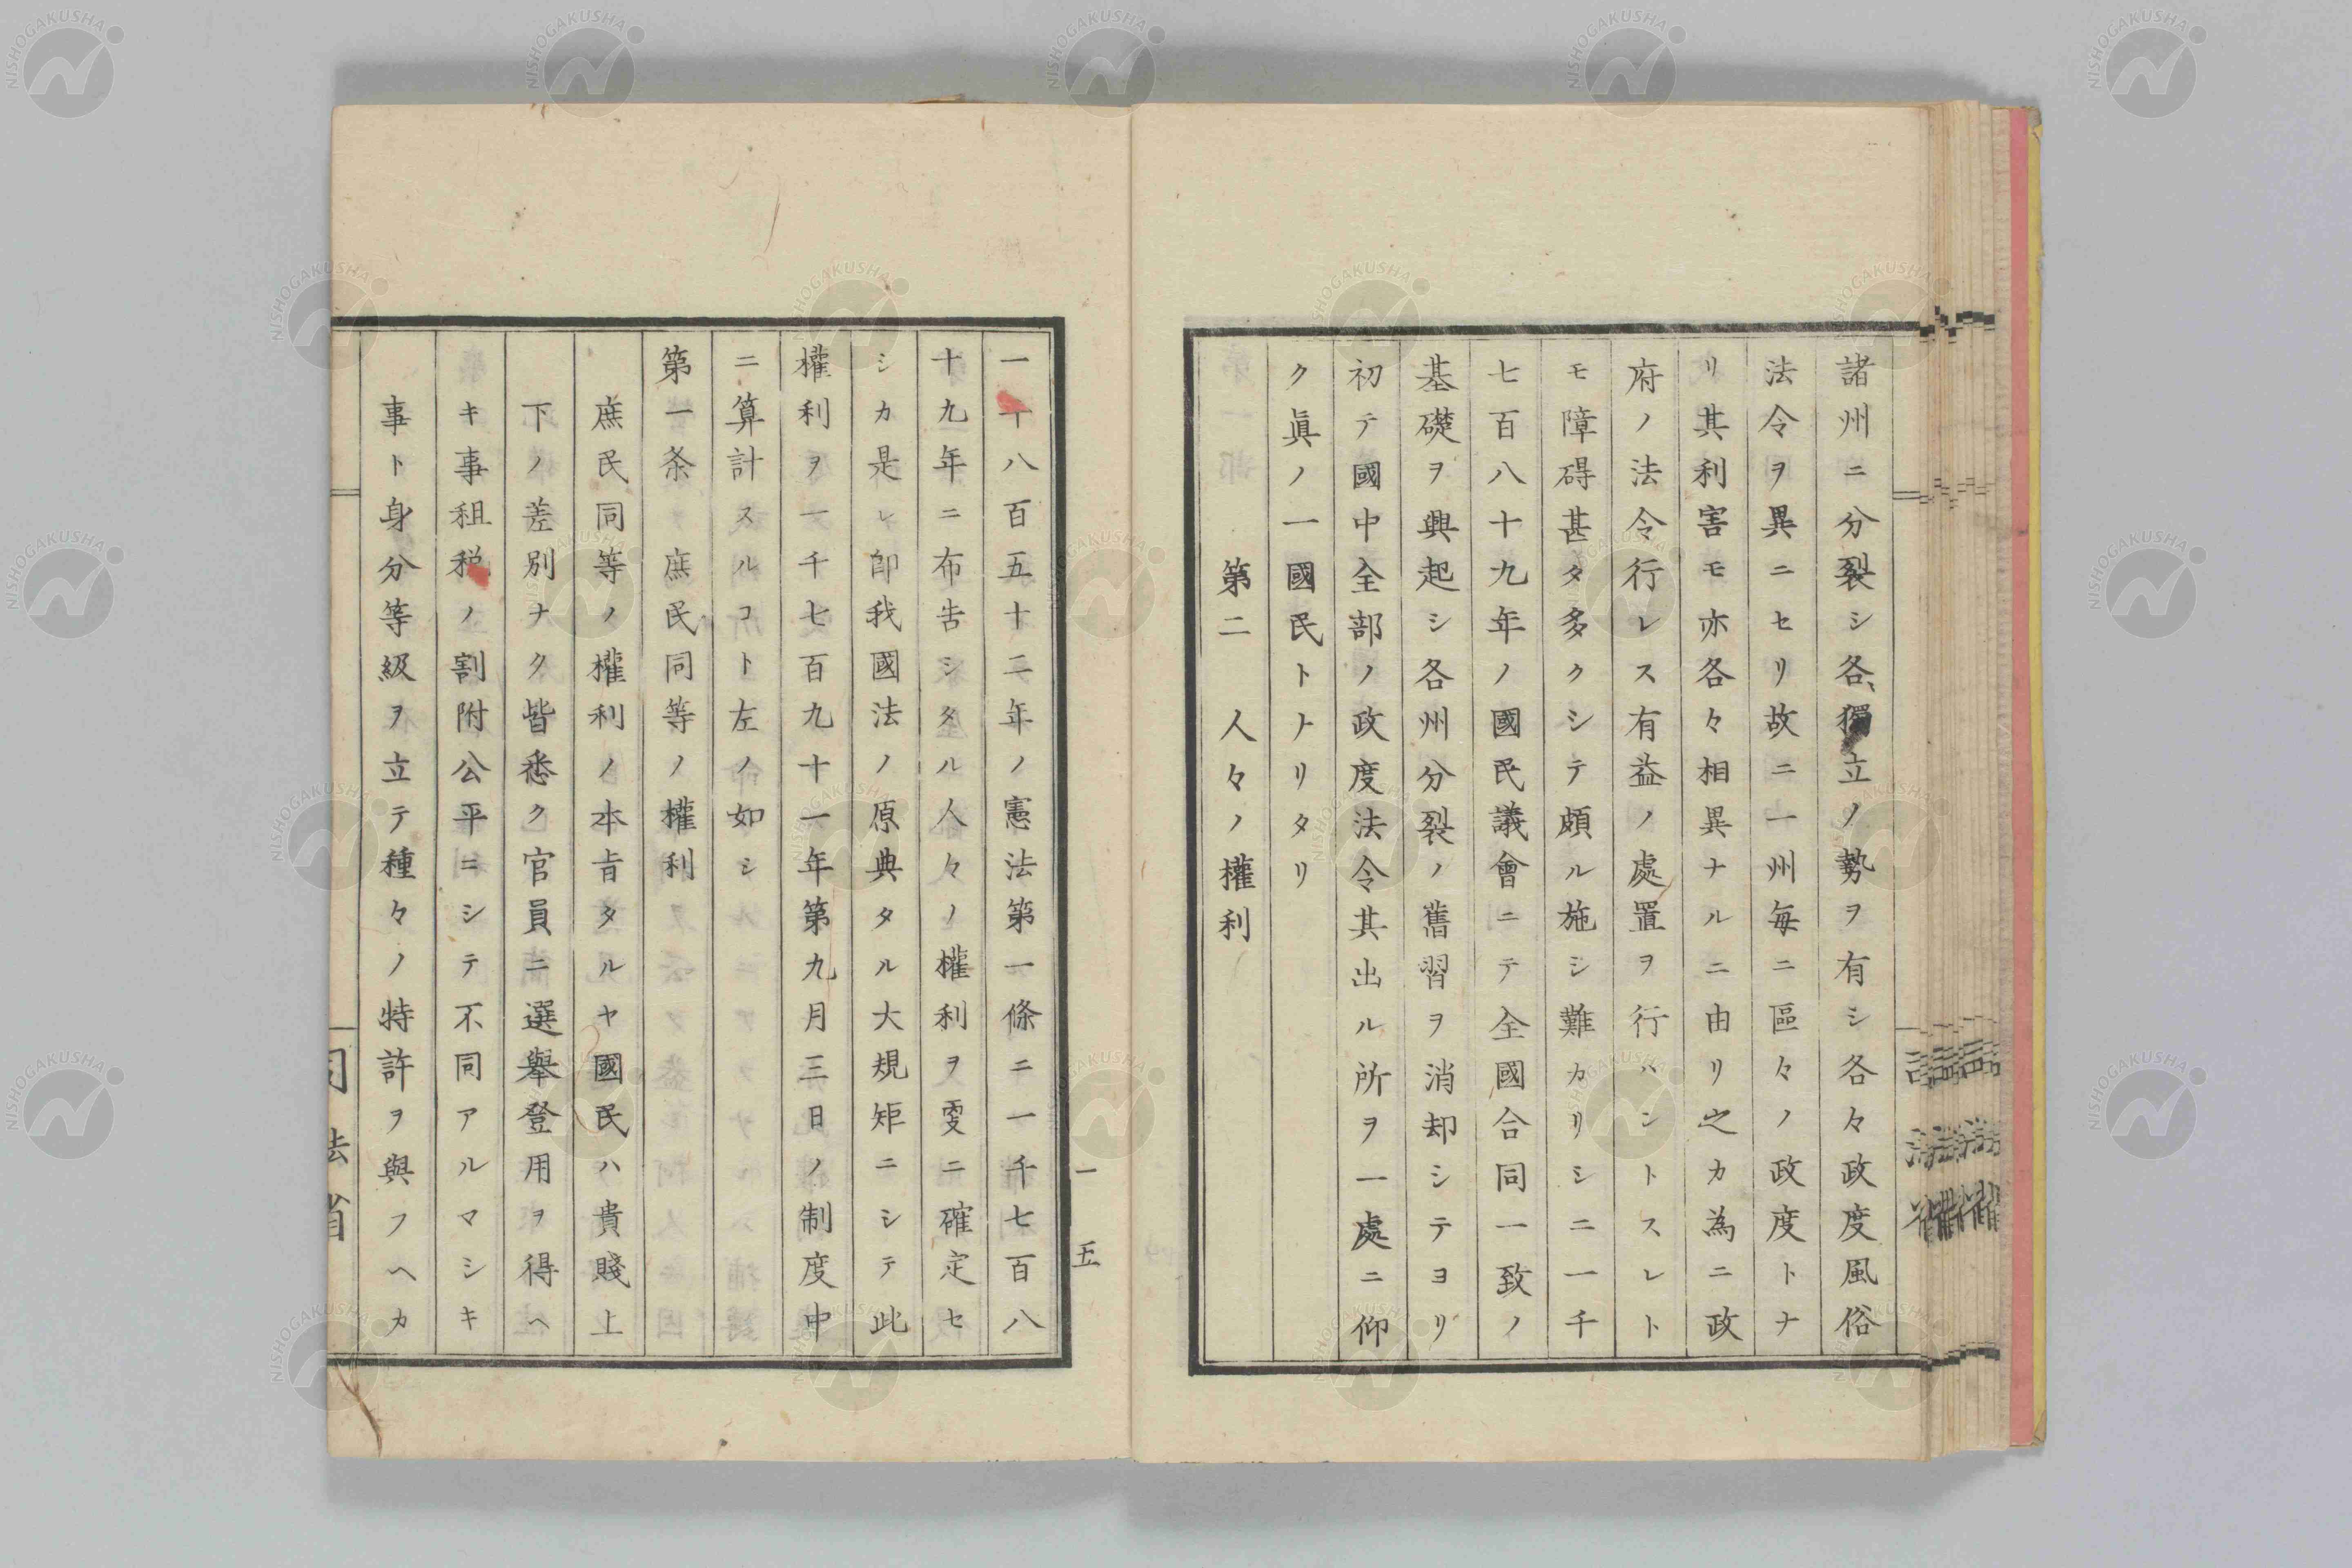 諸州ニ分裂シ各、獨立ノ勢ヲ有シ各々政度風俗
法令ヲ異ニセリ故ニ一州毎ニ區々ノ政度トナ
リ其利害モ亦各々相異ナルニ由リ之カ為ニ政
府ノ法令行レス有益ノ處置ヲ行ハントスレト
モ障碍甚タ多クシテ頗ル施シ難カリシニ一千
七百八十九年ノ國民議會ニテ全國合同一致ノ
基礎ヲ興起シ各州分裂ノ舊習ヲ消却シテヨリ
初テ國中全部ノ政度法令其出ル所ヲ一處ニ仰
ク眞ノ一國民トナリタリ
第二 人々ノ權利
一五
一千八百五十二年ノ憲法第一條ニ一千七百八
十九年ニ布告シタル人々ノ權利ヲ更ニ確定セ
シカ是レ卽我國法ノ原典タル大規矩ニシテ此
權利ヲ一千七百九十一年第九月三日ノ制度中
ニ算計スルコト左ノ如シ
第一条 庶民同等ノ權利
庶民同等ノ權利ノ本旨タルヤ國民ハ貴賤上
下ノ差別ナク皆悉ク官員ニ選擧登用ヲ得ヘ
キ事租税ノ割附公平ニシテ不同アルマシキ
事ト身分等級ヲ立テ種々ノ特許ヲ與フヘカ
司法省
NISHOGAKUSHA